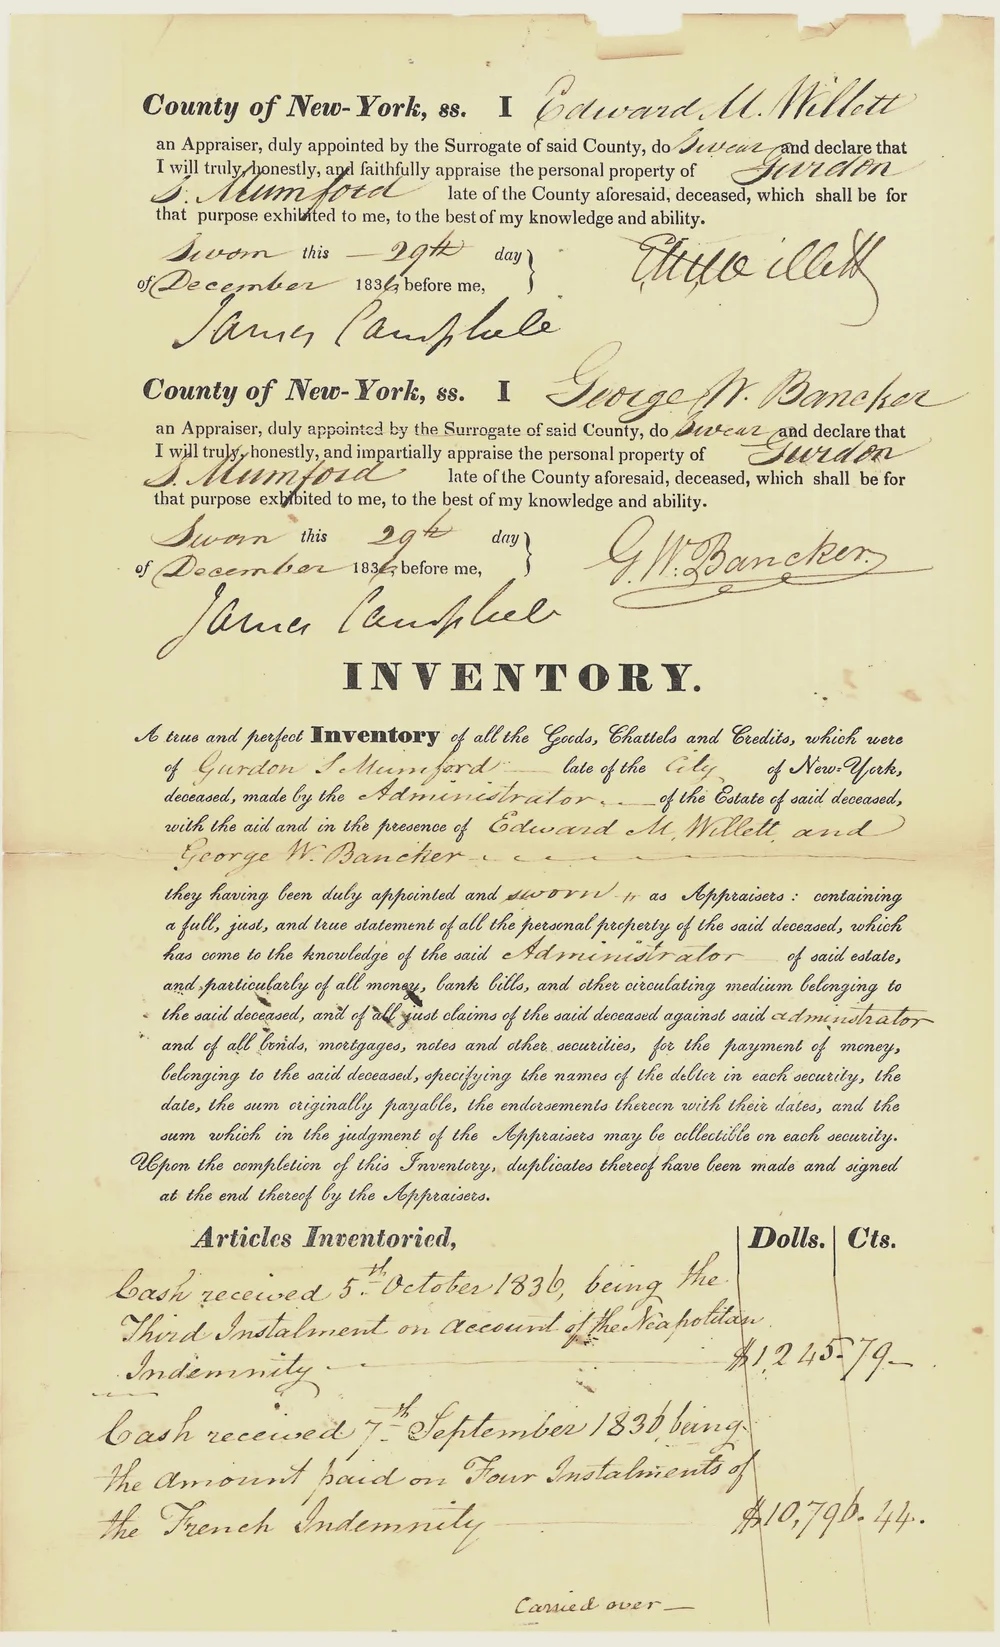 County of New-York, ss. I Edward M. Willett
an Appraiser, duly appointed by the Surrogate of said County, do Swear and declare that
I will truly, honestly, and faithfully appraise the personal property of Gurdon
S. Mumford late of the County aforesaid, deceased, which shall be for
that purpose exhibited to me, to the best of my knowledge and ability.
Sworn this 29th day
of December 1836, before me,
EM Willett
James Campbell
County of New-York, ss. I George W. Bancker
an Appraiser, duly appointed by the Surrogate of said County, do Swear and declare that
I will truly, honestly, and impartially appraise the personal property of Gurdon
S. Mumford late of the County aforesaid, deceased, which shall be for
that purpose exhibited to me, to the best of my knowledge and ability.
Sworn this 29th day
of December 1836, before me,
G. W. Bancker.
James Campbell
INVENTORY.
A true and perfect Inventory of all the Goods, Chattels and Credits, which were
of Gurdon S Mumford late of the City of New-York,
deceased, made by the Administrator of the Estate of said deceased,
with the aid and in the presence of Edward M. Willett and
George W. Bancker
they having been duly appointed and sworn " as Appraisers: containing
a full, just, and true statement of all the personal property of the said deceased, which
has come to the knowledge of the said Administrator of said estate,
and particularly of all money, bank bills, and other circulating medium belonging to
the said deceased, and of all just claims of the said deceased against said administrator
and of all bonds, mortgages, notes and other securities, for the payment of money,
belonging to the said deceased, specifying the names of the debtor in each security, the
date, the sum originally payable, the endorsements thereon with their dates, and the
sum which in the judgment of the Appraisers may be collectible on each security.
Upon the completion of this Inventory, duplicates thereof have been made and signed
at the end thereof by the Appraisers.
Articles Inventoried, Dolls. Cts.
Cash received 5th October 1836, being the
Third Instalment on account of the Neapolitan
Indemnity $1,245.79
Cash received 7th September 1836, being
the amount paid on Four Instalments of
the French Indemnity $10,796.44.
Carried over